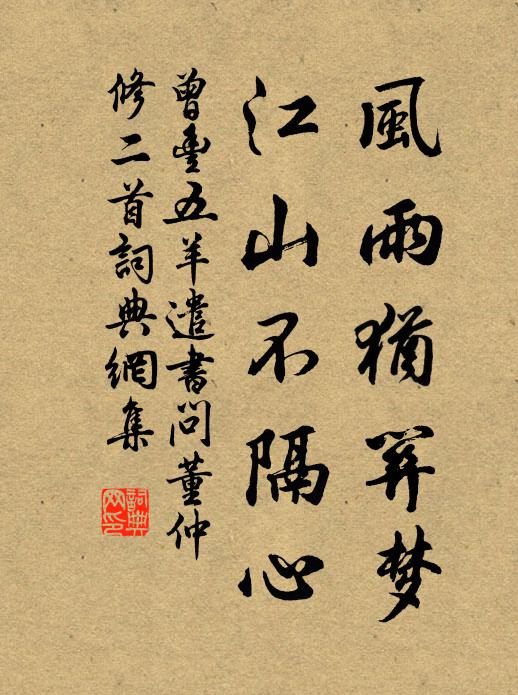 風雨猶梦
江山不隔心
曾豊五羊遣書問董仲
修二首詞典網集
詞典
网印